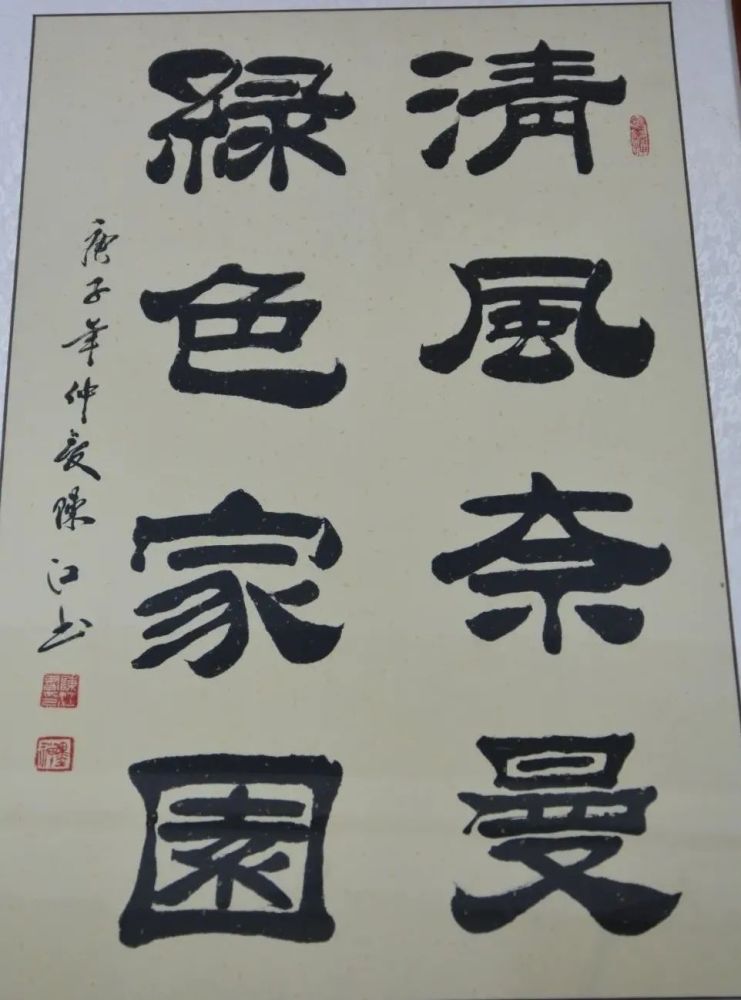 清風奈曼
綠色家園
庚子年仲夏陳江书